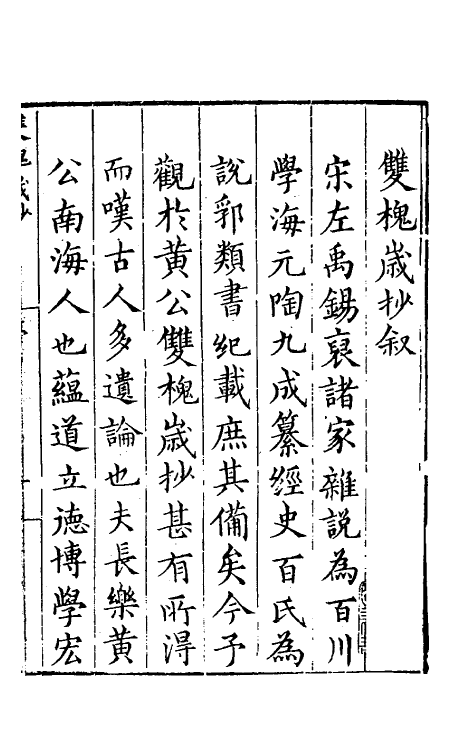 雙槐歲抄叙
宋左禹錫裒諸家雜說為百川
學海元陶九成纂經史百氏為
說郛類書紀載庶其備矣今予
觀於黄公雙槐歲抄甚有所得
而嘆古人多遺論也夫長樂黄
公南海人也蘊道立德博學宏